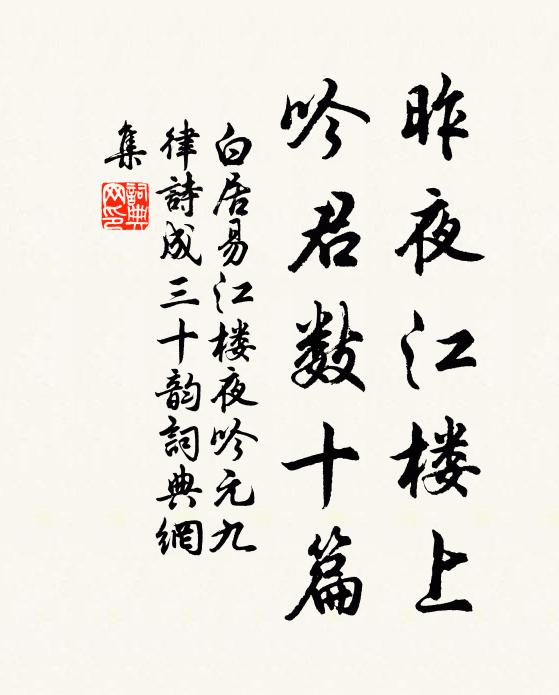 昨夜江楼上
吟君数十篇
白居易江楼夜吟元九
律詩成三十韵詞典網
集
詞典
网印